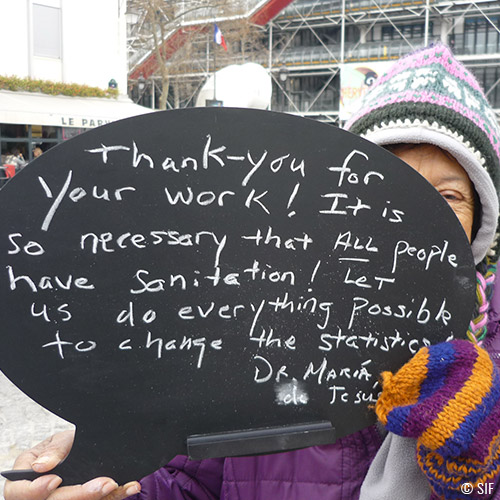 LE PAR
Thank-you for
your work! It is
so necessary that ALL people
have sanitation! LET
us do everything possible
to change the statistics
DR. MARIÁ
de Jesu
© SIF